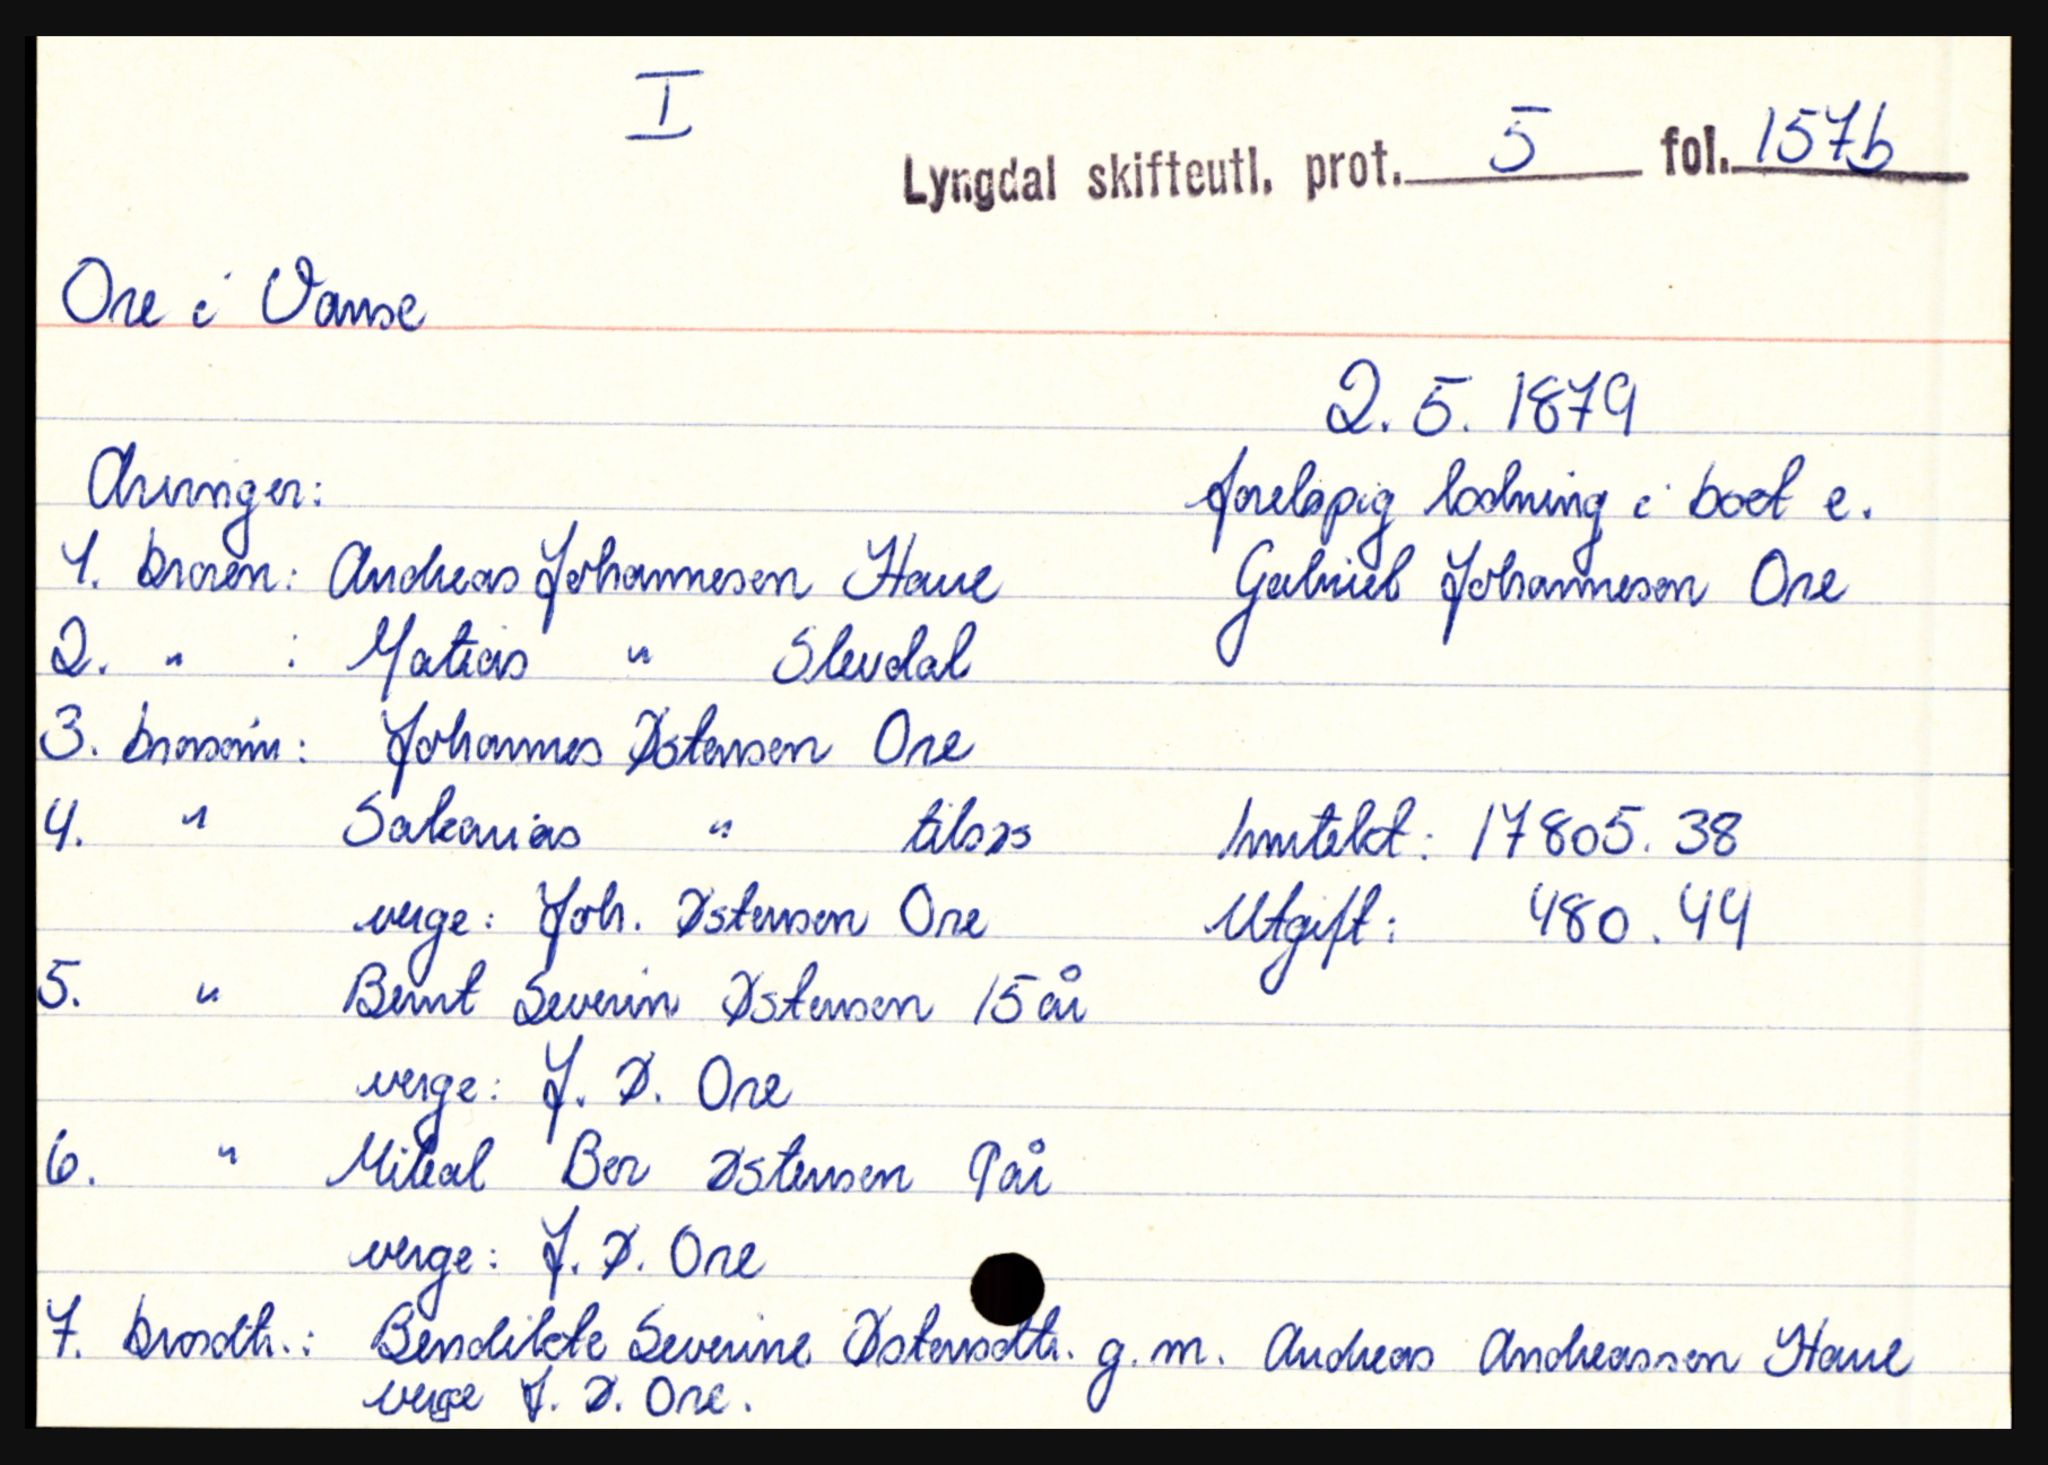 I
Lyngdal skifteutl. prot. 5 fol. 157b
Ore i Vanse
2.5.1879
Arvinger:
foreløpig lodning i boet e.
Gabriel Johannesen Ore
1. broren: Andreas Johannesen Haue
2. " : Matias " Slevdal
3. brorsøn: Johannes Østensen Ore
4. " Sakarias " tilsjøs
verge: Joh. Østensen Ore
Inntekt: 17805.38
Utgift: 480.44
5. " Bernt Severin Østensen 15 år
verge: J. Ø. Ore
6. " Mikal Ber Østensen 9 år
verge: J. Ø. Ore
7. brosdtr.: Bendikte Severine Østensdtr. g.m. Andreas Andreassen Haue
verge J. Ø. Ore.